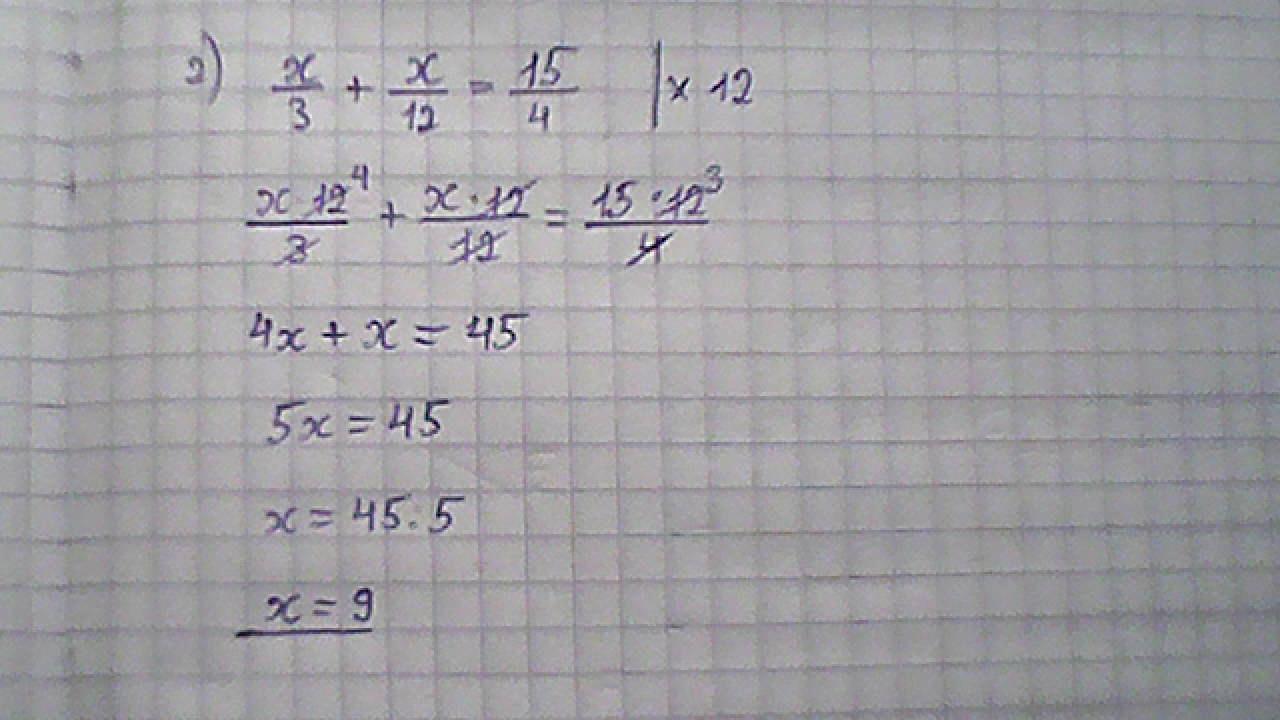 2) x/3 + x/12 = 15/4 | x 12
x·12⁴/3 + x·12/12 = 15·12³/4
4x + x = 45
5x = 45
x = 45:5
x = 9